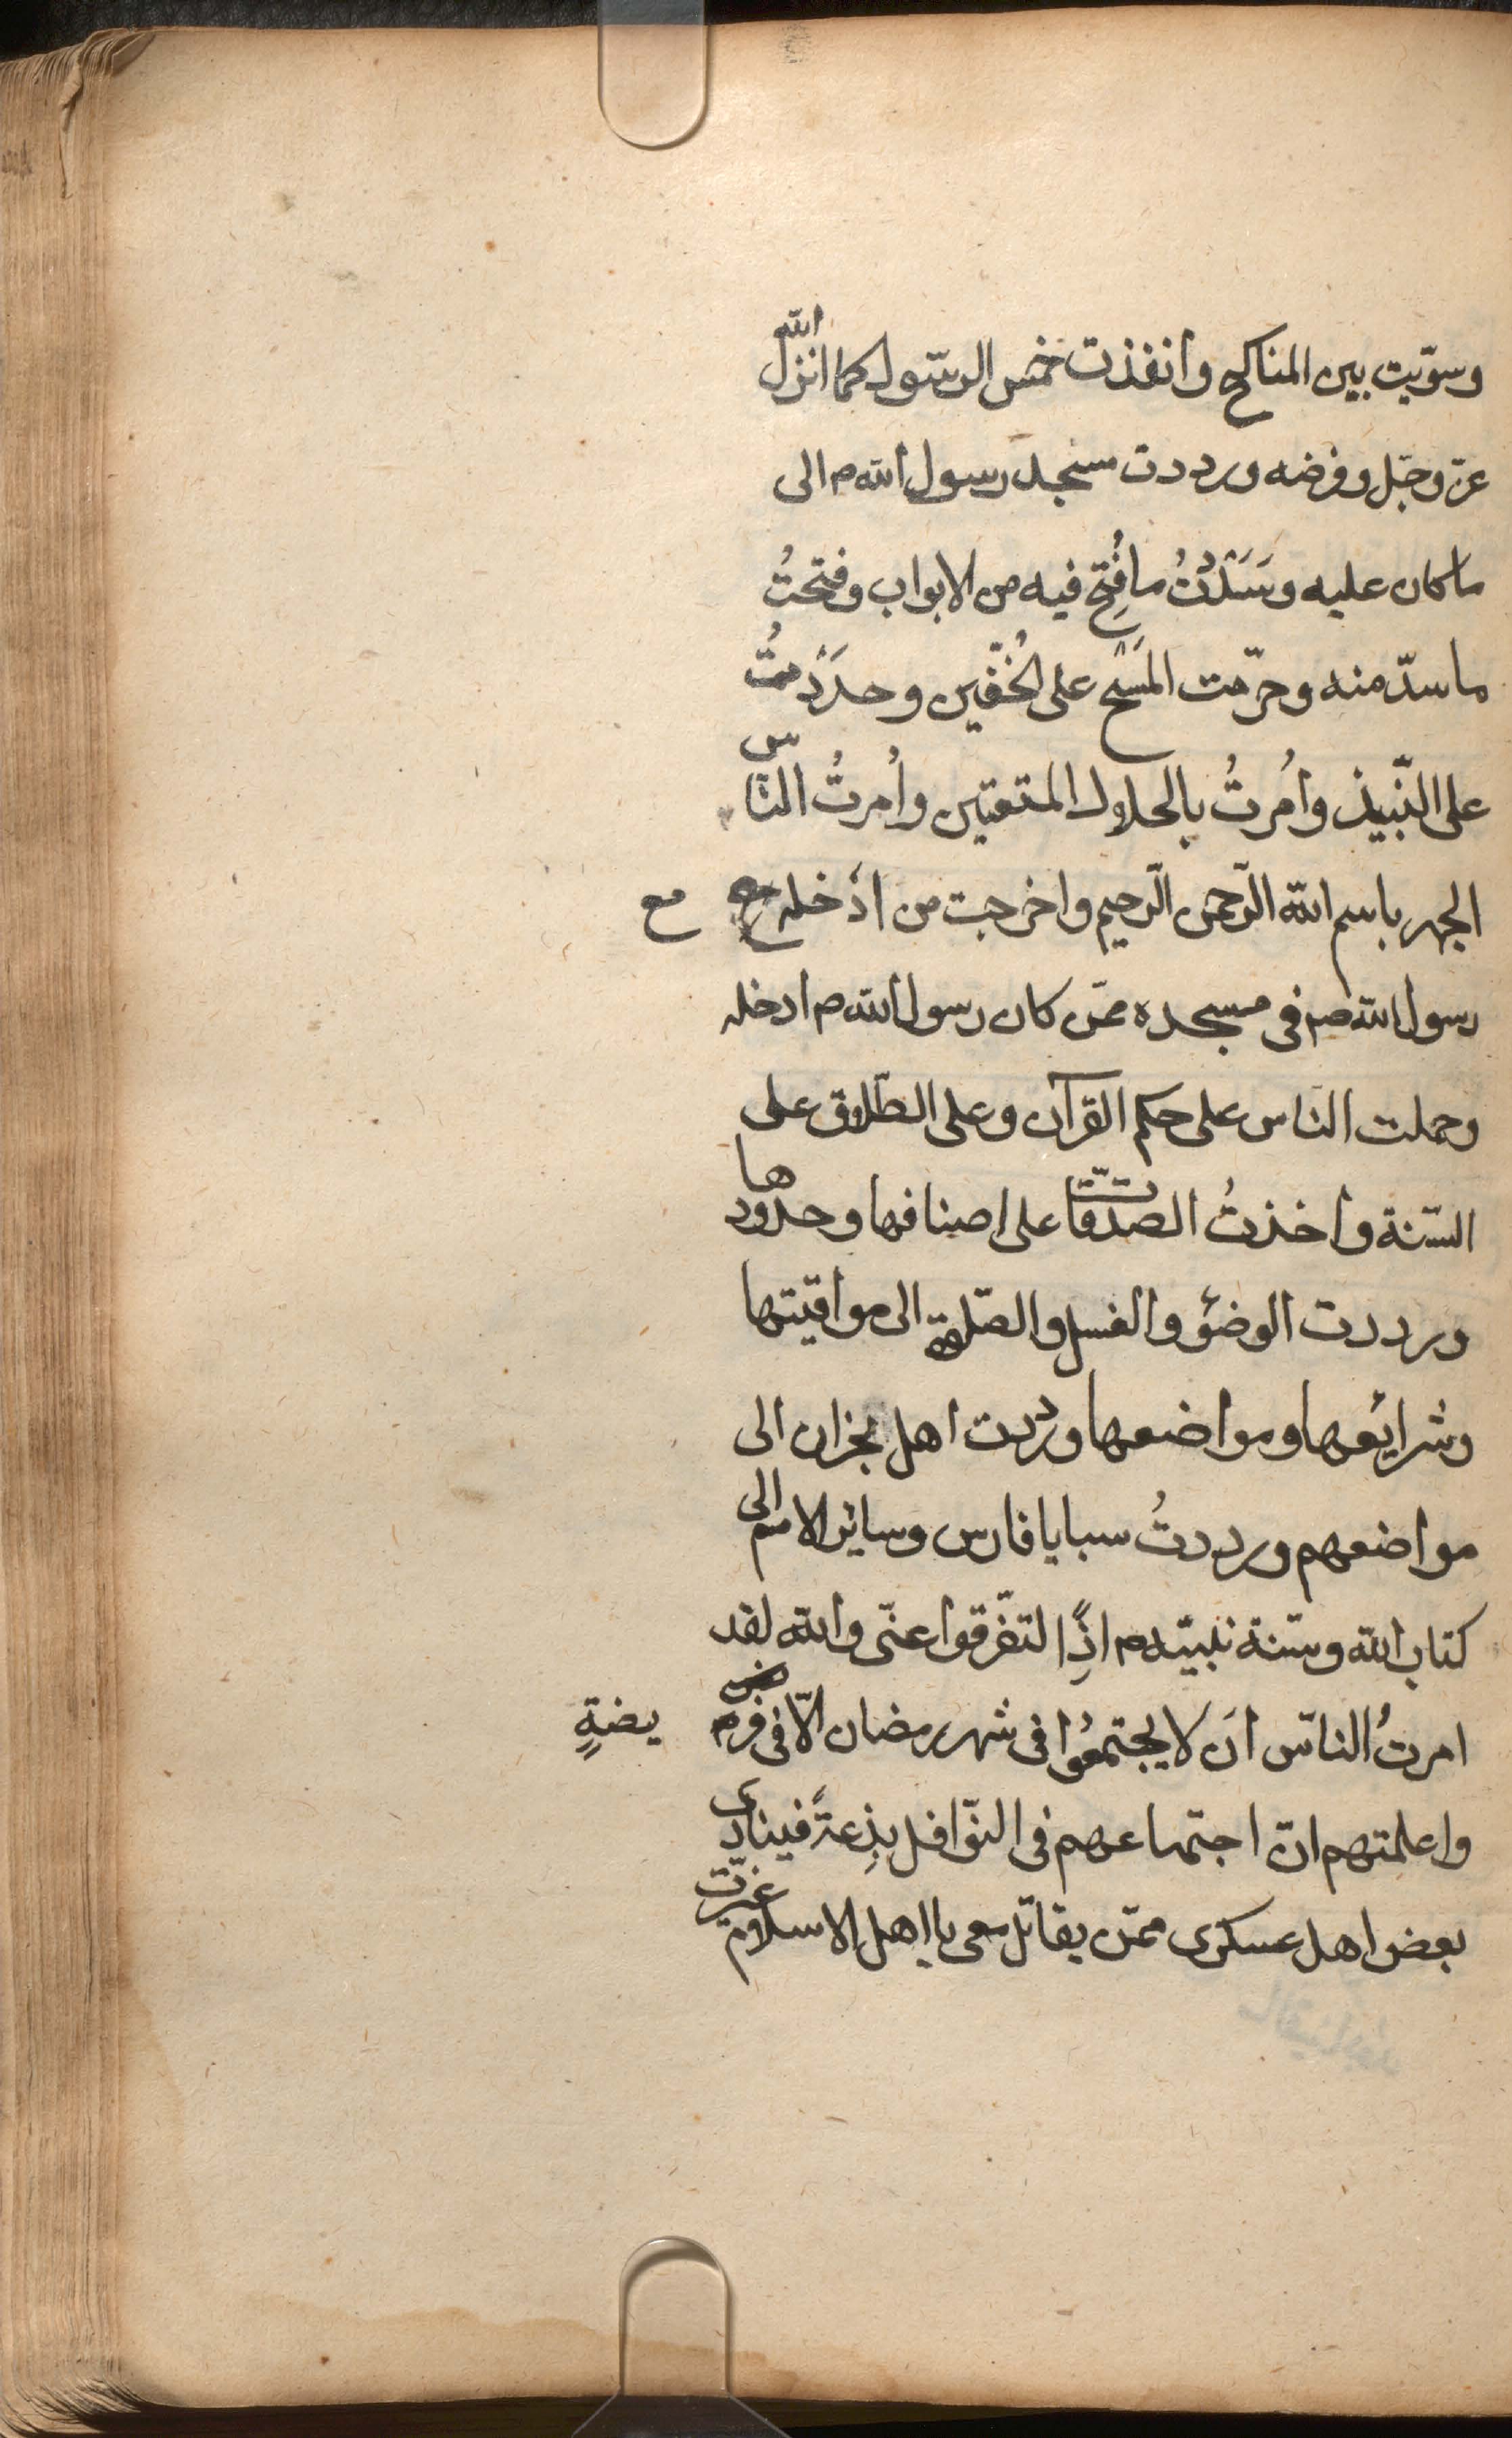 وسوّيت بين المناكح وانفذت خمس الرسّول كما انزل الله
عزّ وجّل وفرضه ورددت مسجد رسول الله ص الى
ما كان عليه وسَدَدْتُ ما فُتِح فيه من الابواب وفتحتُ
ما سدّ منه وحرّمت المَسْح على الخُفّين وحدَدْتُ
على النّبيذ واُمرتُ بالحلال المتعتين واُمرتُ النّاس
الجهر باسم الله الرّحمن الرّحيم واخرجت من ادْخله مع
رسول الله ص فى مسجده ممّن كان رسول الله ص ادخله
وحملت النّاس على حكم القرآن وعلى الطّلاق على
السّنة واخذتُ الصدّقات على اصنافها وحدودها
ورددت الوضؤ والغسل والصّلوة الى مواقيتها
وشرائعها ومواضعها ورددت اهل نجران الى
مواضعهم ورددتُ سبايا فارس وسائر الامم الى
كتاب الله وسّنة نبيّه ص اذًِا لتفّرقوا عنّى والله لقد
امرتُ الناّس اَن لا يجتمعُوا فى شهر رمضان الّا فى فريضةٍ
واعلمتهم انّ اجتماعهم فى النوّافل بِدْعةً فينادى
بعض اهل عسكرى ممّن يقاتل معى يا اهل الاسلام غيّرت